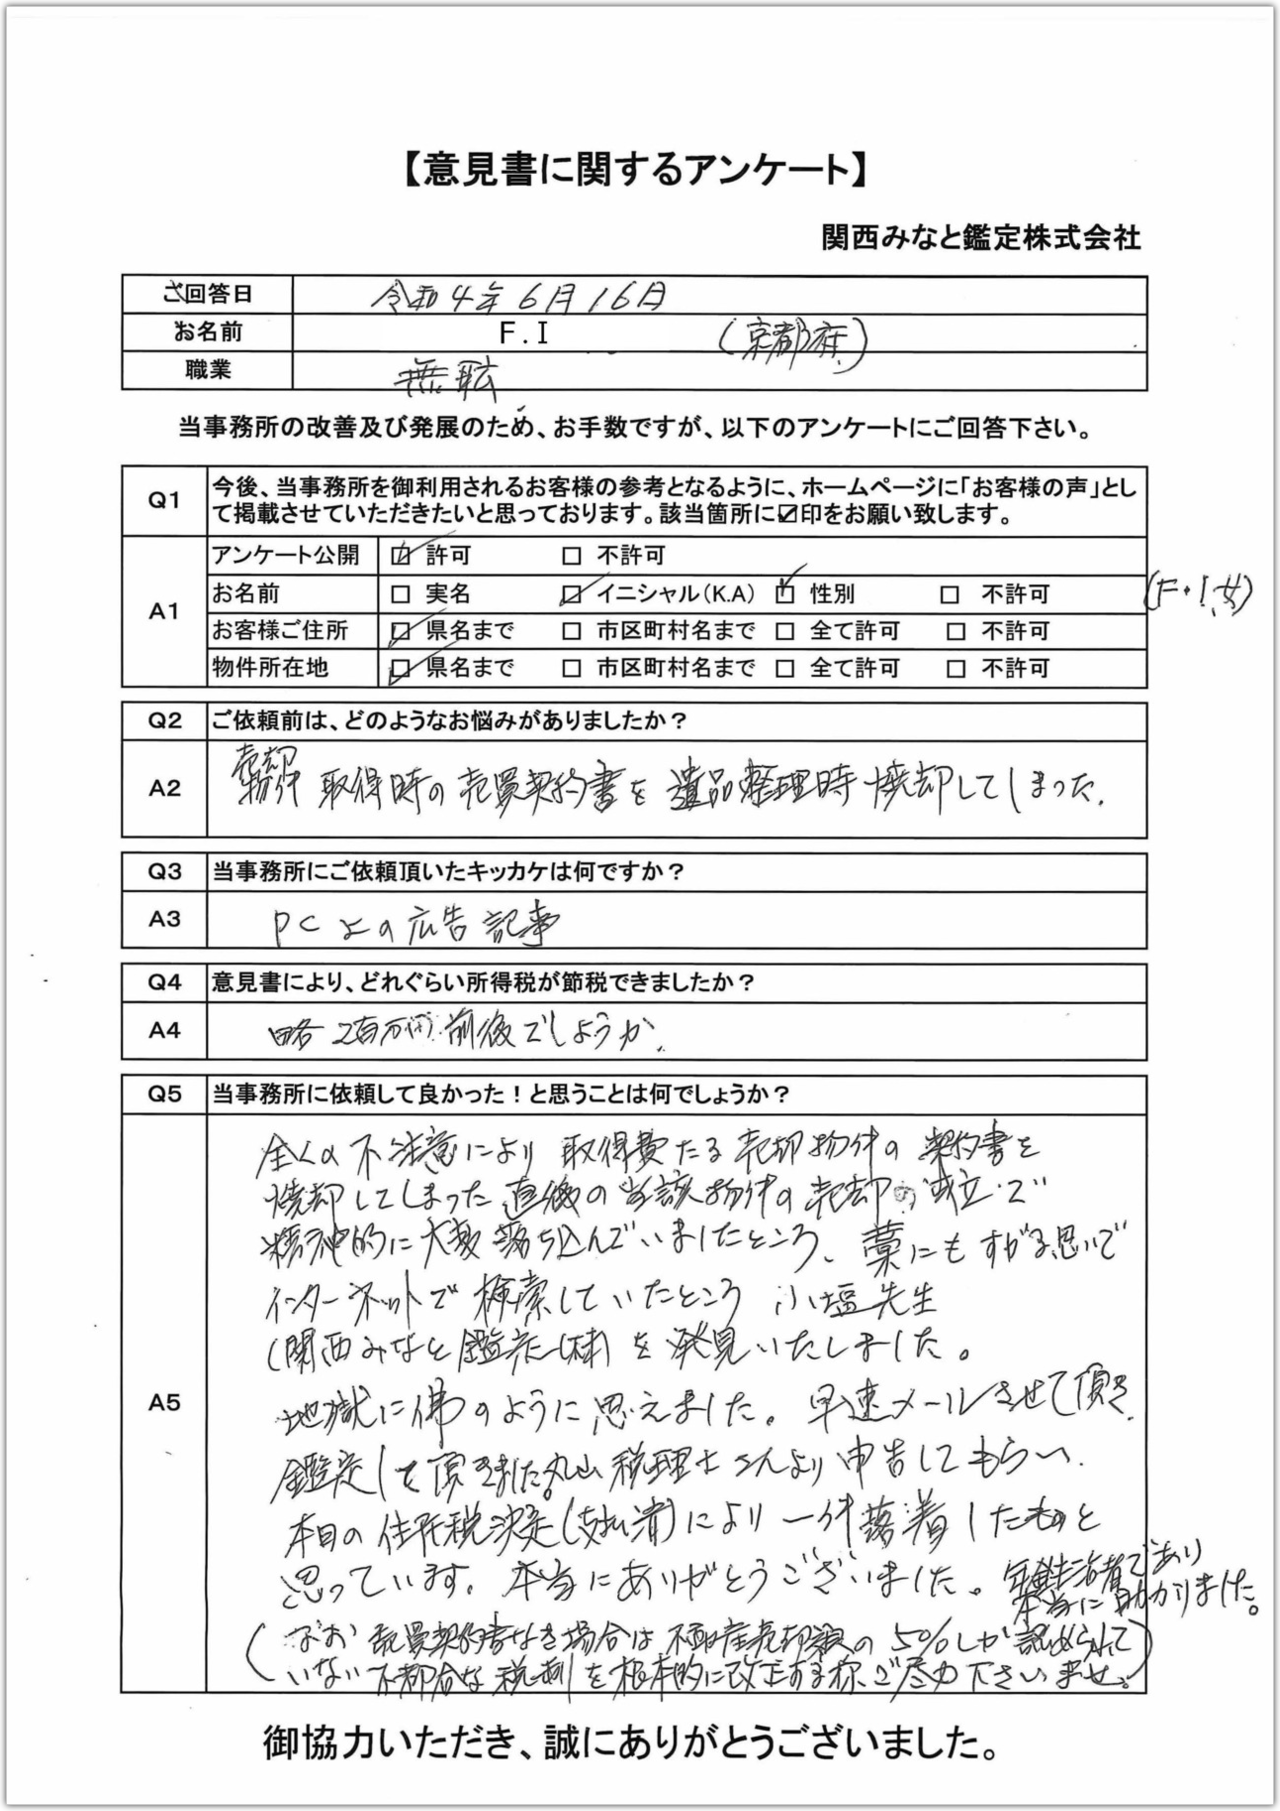 【意見書に関するアンケート】
関西みなと鑑定株式会社
ご回答日 令和4年6月16日
お名前 F.I (京都府)
職業 無職
当事務所の改善及び発展のため、お手数ですが、以下のアンケートにご回答下さい。
Q1 今後、当事務所を御利用されるお客様の参考となるように、ホームページに「お客様の声」とし
て掲載させていただきたいと思っております。該当箇所に☑印をお願い致します。
A1
アンケート公開 ☑ 許可 □ 不許可
お名前 □ 実名 ☑ イニシャル(K.A) ☑ 性別 □ 不許可 (F.I.女)
お客様ご住所 ☑ 県名まで □ 市区町村名まで □ 全て許可 □ 不許可
物件所在地 ☑ 県名まで □ 市区町村名まで □ 全て許可 □ 不許可
Q2 ご依頼前は、どのようなお悩みがありましたか?
A2 売却物件 取得時の売買契約書を遺品整理時焼却してしまった.
Q3 当事務所にご依頼頂いたキッカケは何ですか?
A3 PCよの広告記事
Q4 意見書により、どれぐらい所得税が節税できましたか?
A4 略2百万円前後でしょうか.
Q5 当事務所に依頼して良かった!と思うことは何でしょうか?
A5
全くの不注意により 取得費たる売却物件の契約書を
焼却してしまった直後の当該物件の売却の成立で
精神的に大変落ち込んでいましたところ、藁にもすがる思いで
インターネットで検索していたところ 小塩先生
(関西みなと鑑定(株))を発見いたしました。
地獄に佛のように思えました。早速メールさせて頂き
鑑定して頂きました。丸山税理士さんより申告してもらい、
本日の住民税決定(支払済)により一件落着したものと
思っています。本当にありがとうございました。年金生活者であり
本当に助かりました。
(なお 売買契約書なき場合は不動産売却額の5%しか認められて
いない不都合な税制を根本的に改正する様、ご尽力下さいませ。)
御協力いただき、誠にありがとうございました。